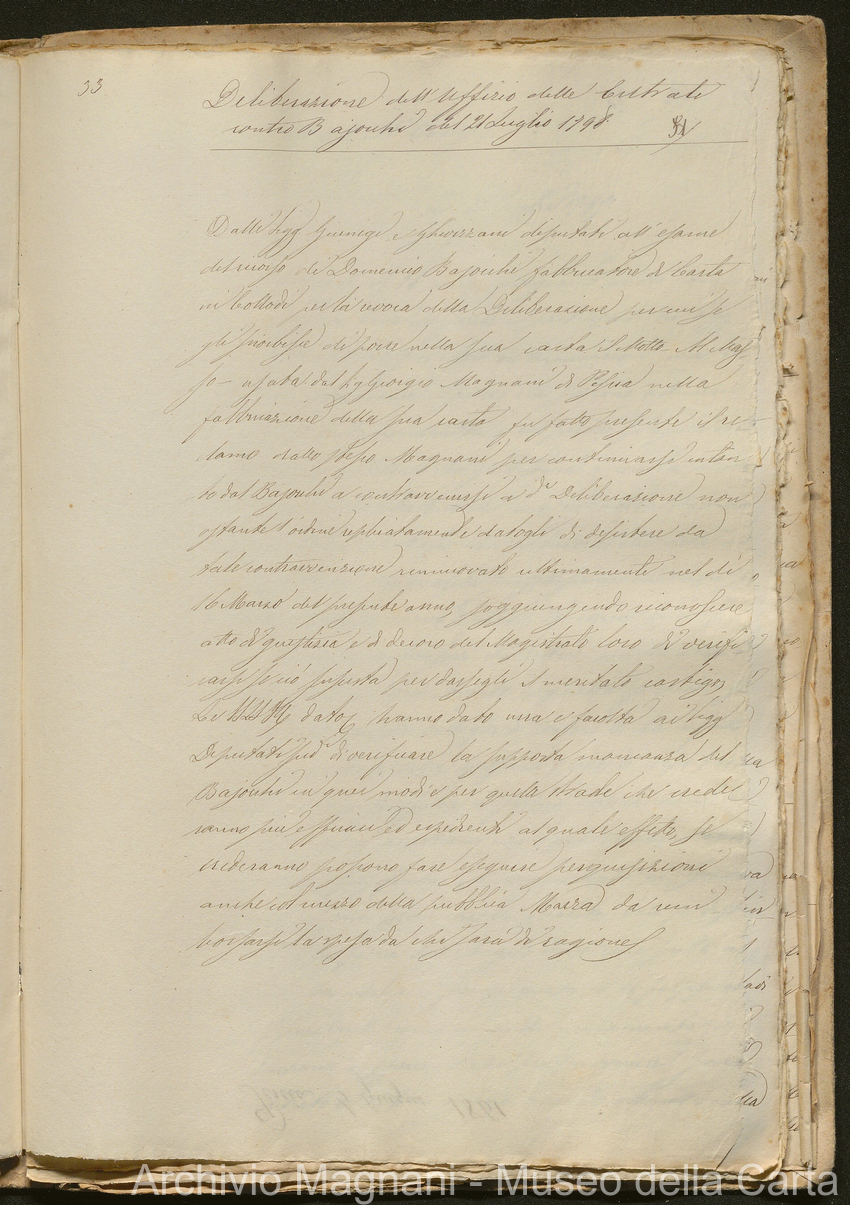 33
Deliberazione dell'Uffizio delle Entrate
contro Bajocchi del 21 Luglio 1798.
Dalli Sigg. e Ghivizzani deputati all'esame
del ricorso di Domenico Bajocchi fabbricatore di Carta
in Collodi per la revoca della Deliberazione per cui se
gli proibisse di porre nella sua carta il Motto Al Mas
so usata dal Sig. Giorgio Magnani di Pescia nella
fabbricazione della sua carta fu fatto presente il re
clamo dello stesso Magnani per continuarsi intan
to dal Bajocchi a contravvenirsi a da. Deliberazione non
ostante l'ordine replicatamente datogli di desistere da
tale contravvenzione rinnovato ultimamente nel dì
16 Marzo del presente anno, soggiungendo riconoscere
atto di giustizia e di decoro del Magistrato loro di verifi
carsi se ciò sussista per darsegli il meritato castigo,
Le hanno dato cura e facoltà ai Sigg.
Deputati sud. di verificare la supposta mancanza del
Bajocchi in quei modi e per quelle strade che crede
ranno più efficaci ed espedienti al quale effetto, se
crederanno possono fare eseguire perquisizioni
anche col mezzo della pubblica Mazza da rim
borsarsi la spesa da chi sarà di ragione
Archivio Magnani - Museo della Carta